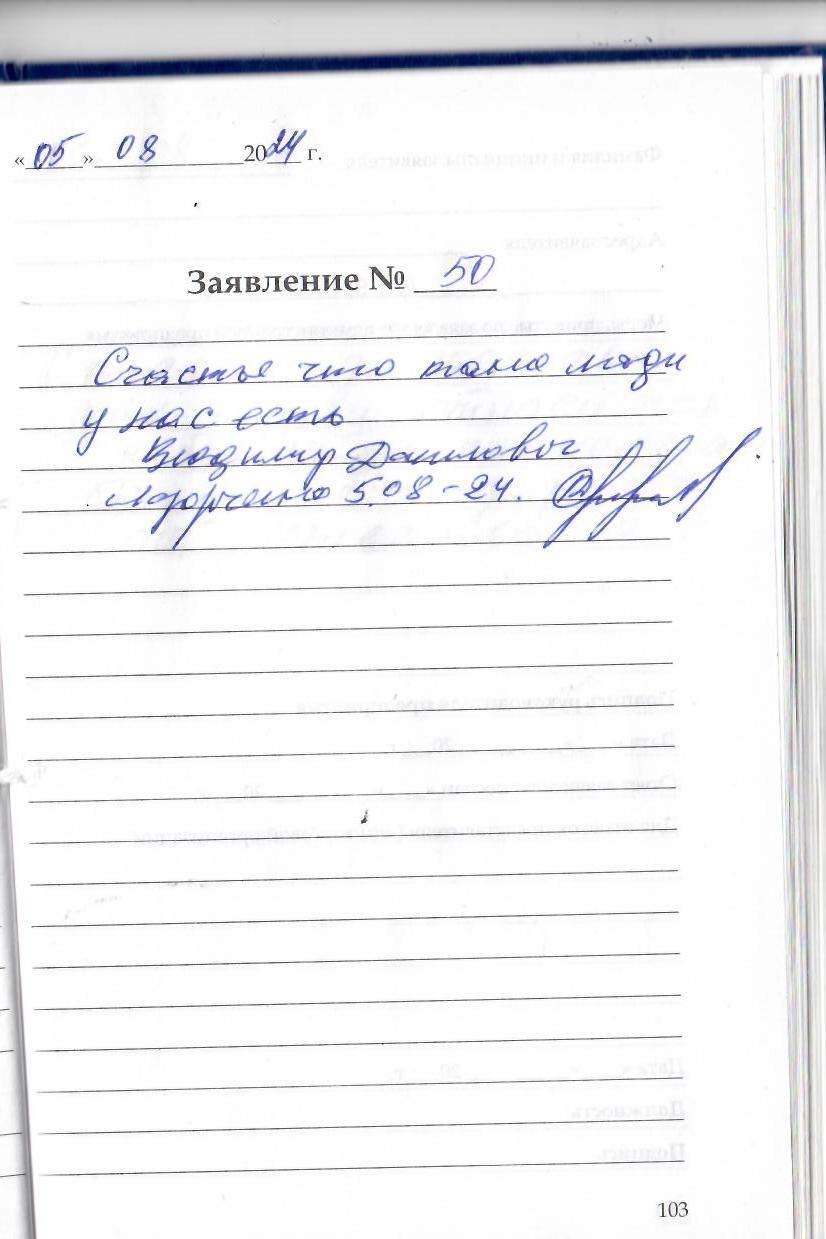 «05» 08 2024 г.
Заявление № 50
Счастье что такие люди
у нас есть
Владимир Данилович
5.08-24.
103